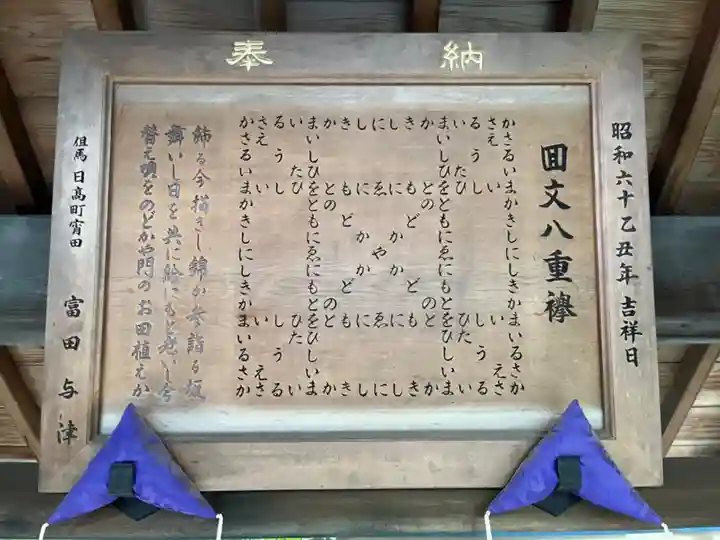 奉納
昭和六十乙丑年 吉祥日
囬文八重襷
かさるいまかきしにしきかまいるさか
さえ い い えさ
るうし しうる
いたひ ひたい
まいしひをともにゑにもとをひしいま
か との のと か
き もど ども き
し にかかに し
に ゑやゑ に
し にかかに し
き もど ども き
か との のと か
まいしひをともにゑにもとをひしいま
いたひ ひたい
るうし しうる
さえ い い えさ
かさるいまかきしにしきかまいるさか
飾る今描きし錦か参詣る坂
舞いし日を共に絵にもと
替え唄をのどかや門のお田植えか
但馬 日高町宵田 富田与津